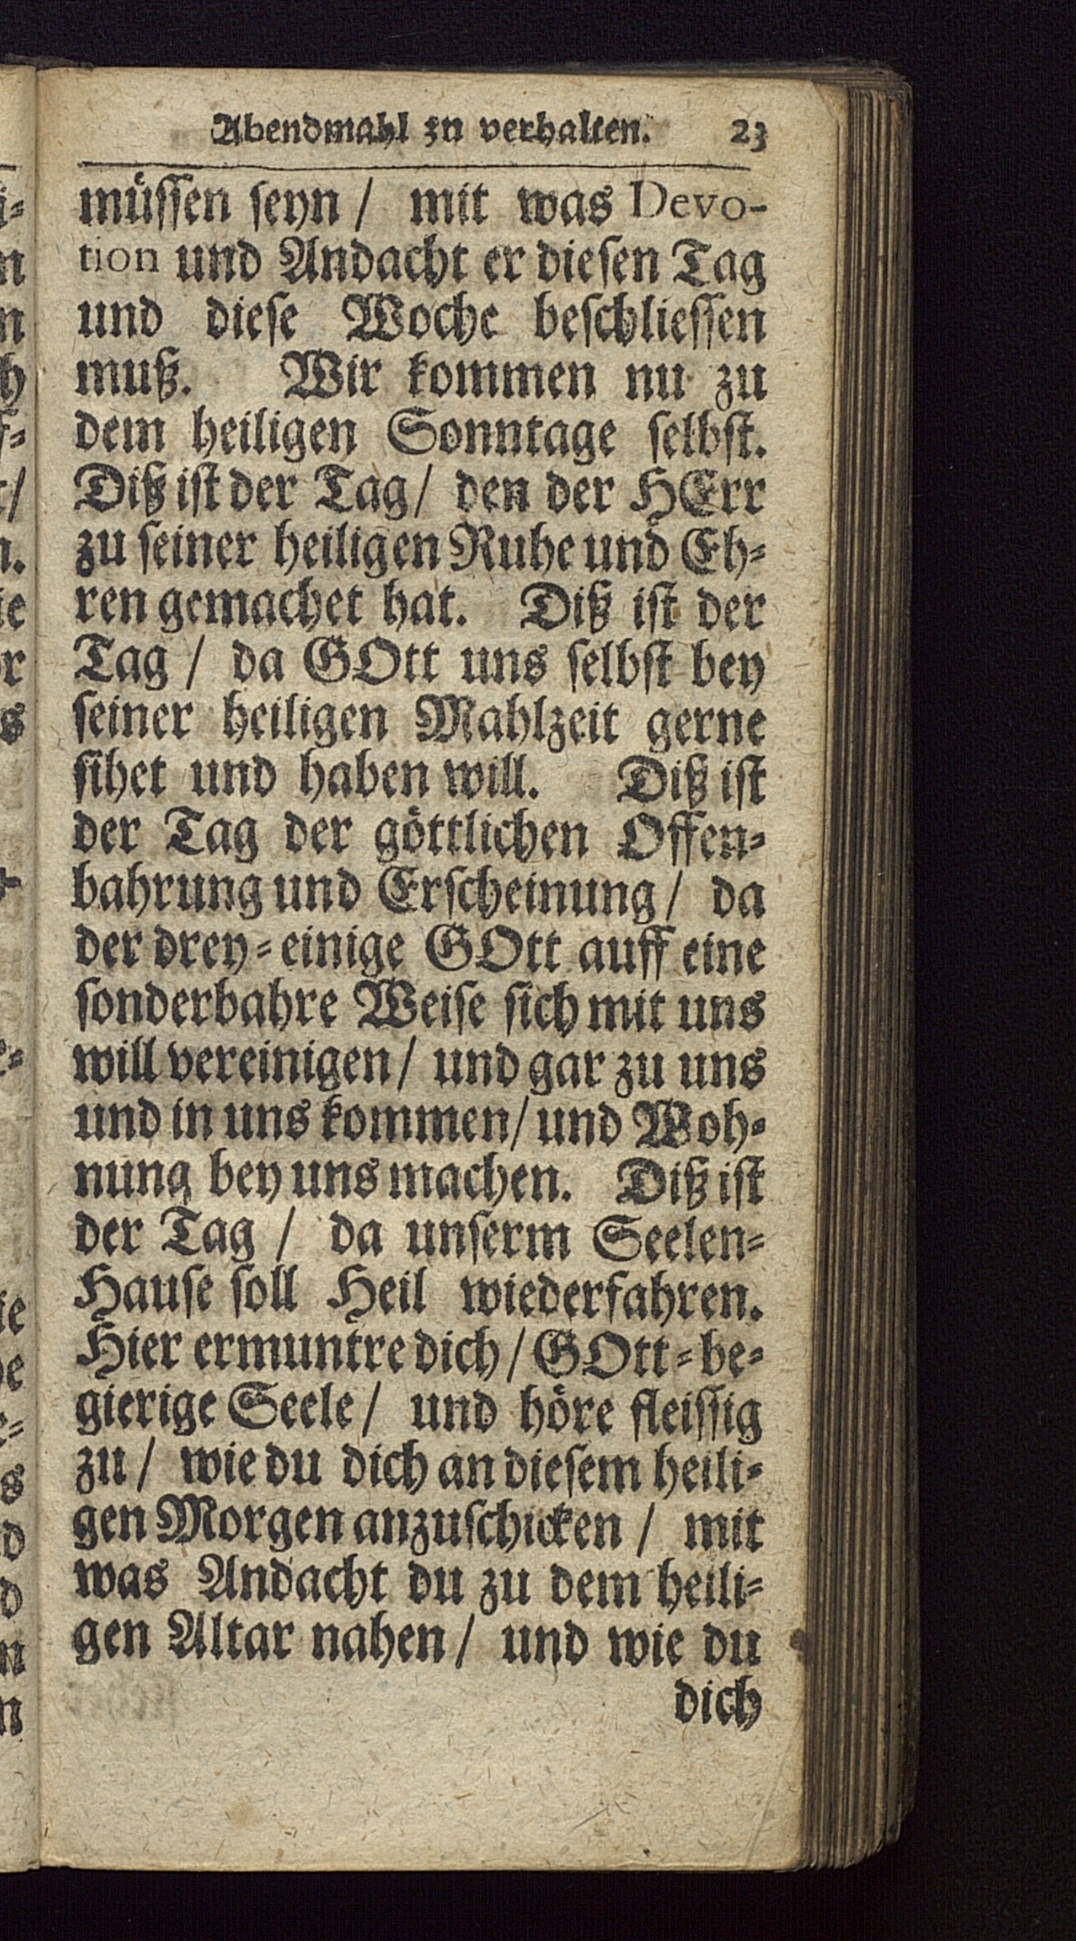 Abendmahl zu verhalten. 23
müssen seyn / mit was Devo-
tion und Andacht er diesen Tag
und diese Woche beschliessen
muß. Wir kommen nu zu
dem heiligen Sonntage selbst.
Diß ist der Tag / den der HErr
zu seiner heiligen Ruhe und Eh-
ren gemachet hat. Diß ist der
Tag / da GOtt uns selbst bey
seiner heiligen Mahlzeit gerne
sihet und haben will. Diß ist
der Tag der göttlichen Offen-
bahrung und Erscheinung / da
der drey-einige GOtt auff eine
sonderbahre Weise sich mit uns
will vereinigen / und gar zu uns
und in uns kommen / und Woh-
nung bey uns machen. Diß ist
der Tag / da unserm Seelen-
Hause soll Heil wiederfahren.
Hier ermuntre dich / GOtt-be-
gierige Seele / und höre fleissig
zu / wie du dich an diesem heili-
gen Morgen anzuschicken / mit
was Andacht du zu dem heili-
gen Altar nahen / und wie du
dich